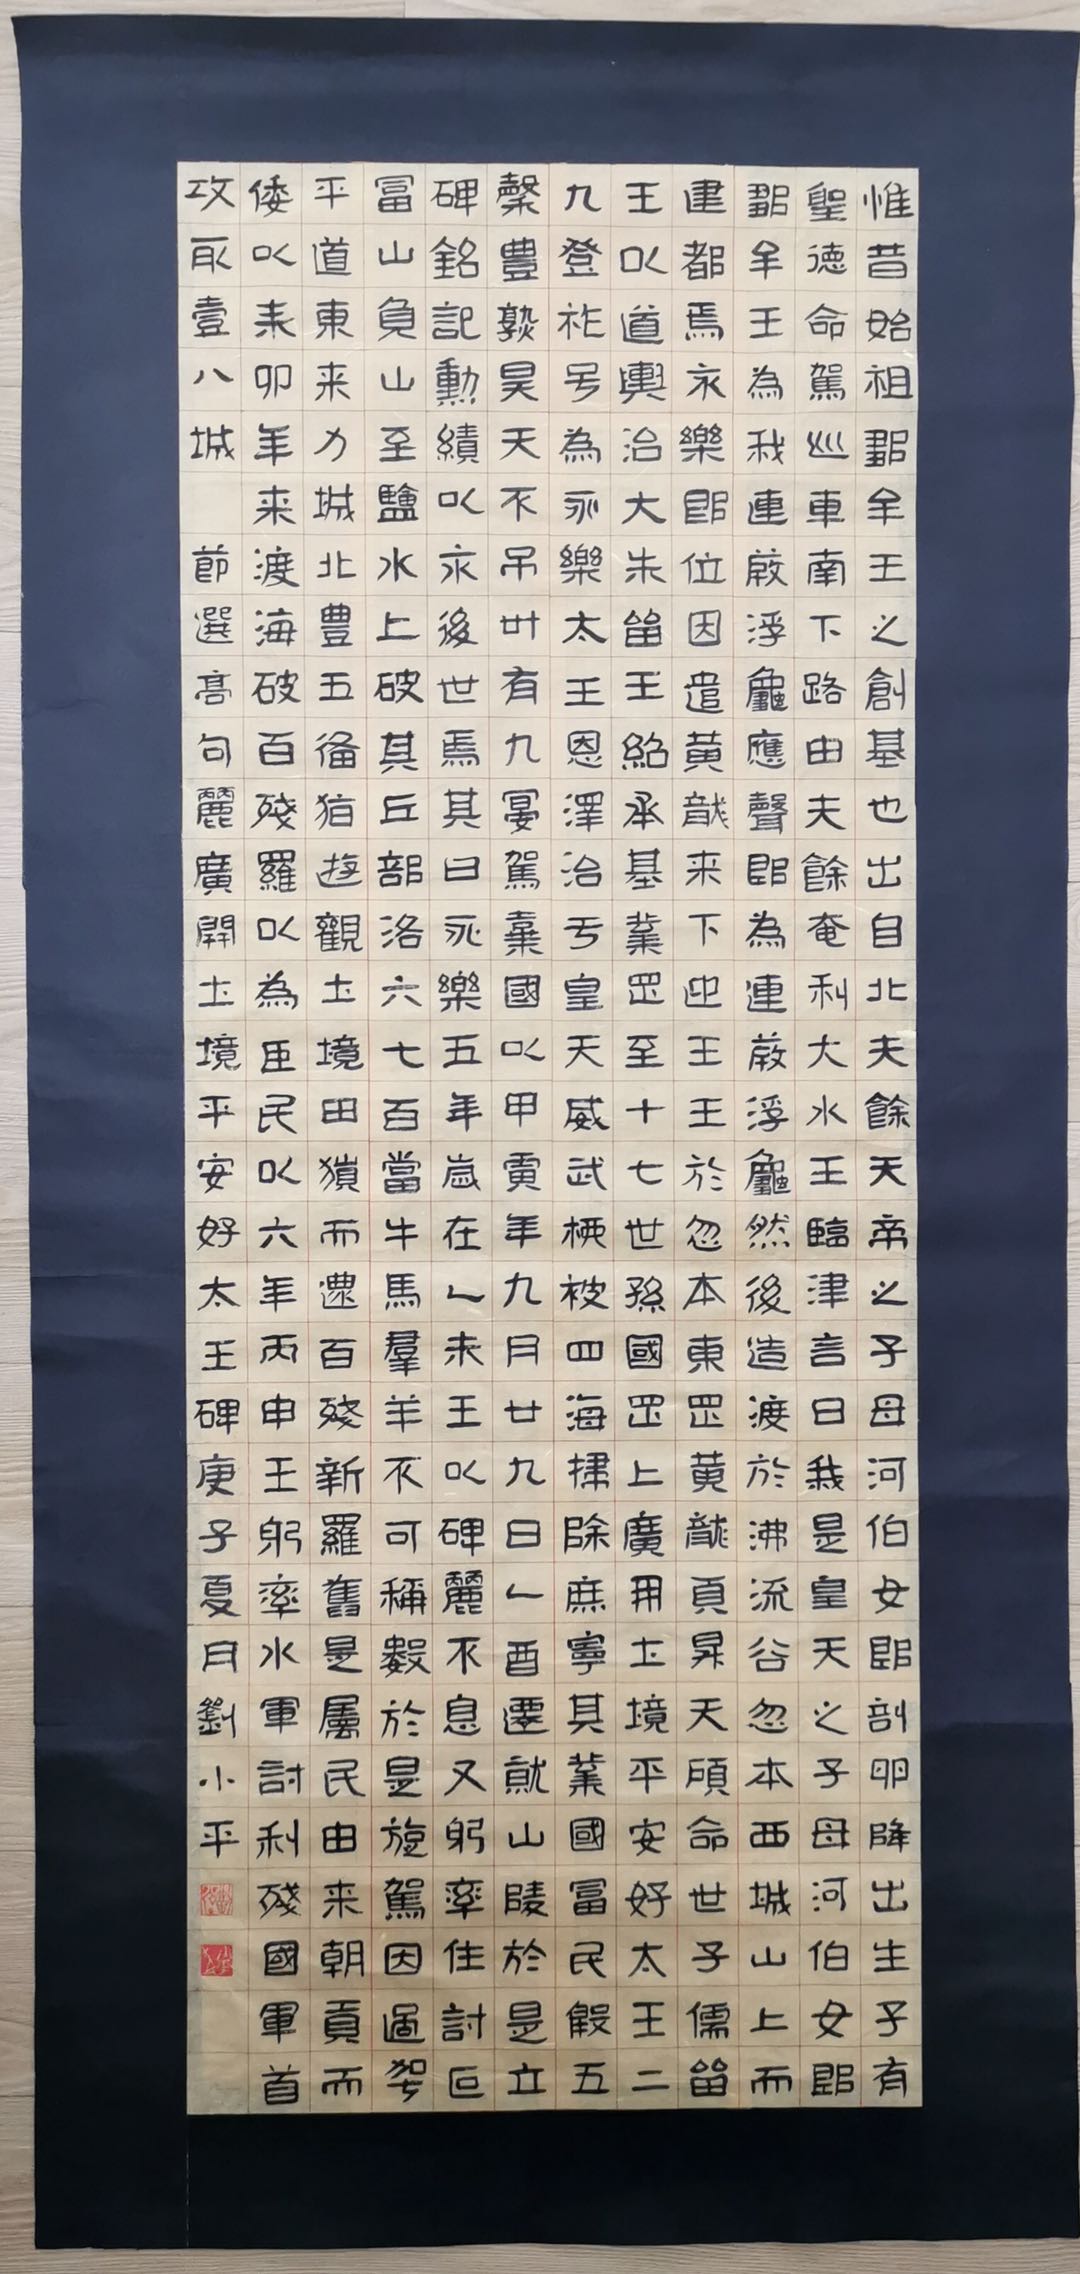 惟昔始祖鄒牟王之創基也出自北夫餘天帝之子母河伯女郎剖卵降出生子有
聖德命駕巡車南下路由夫餘奄利大水王臨津言曰我是皇天之子母河伯女郎
鄒牟王為我連葭浮龜應聲即為連葭浮龜然後造渡於沸流谷忽本西城山上而
建都焉永樂即位因遣黃龍来下迎王王於忽本東罡黃龍頁昇天顧命世子儒留
王以道輿治大朱留王紹承基業罡至十七世孫國罡上廣開土境平安好太王二
九登祚号為永樂太王恩澤洽于皇天威武柳被四海掃除庶寧其業國富民殷五
穀豐熟昊天不吊卅有九晏駕棄國以甲寅年九月廿九日乙酉遷就山陵於是立
碑銘記勳績以永後世焉其曰永樂五年歲在乙未王以碑麗不息又躬率住討叵
富山負山至鹽水上破其丘部洛六七百當牛馬羣羊不可稱數於是旋駕因過駕
平道東来力城北豐五備猶遊觀土境田獵而還百殘新羅舊是屬民由来朝貢而
倭以耒卯年来渡海破百殘羅以為臣民以六年丙申王躬率水軍討利殘國軍首
攻取壹八城 節選高句麗廣開土境平安好太王碑庚子夏月劉小平